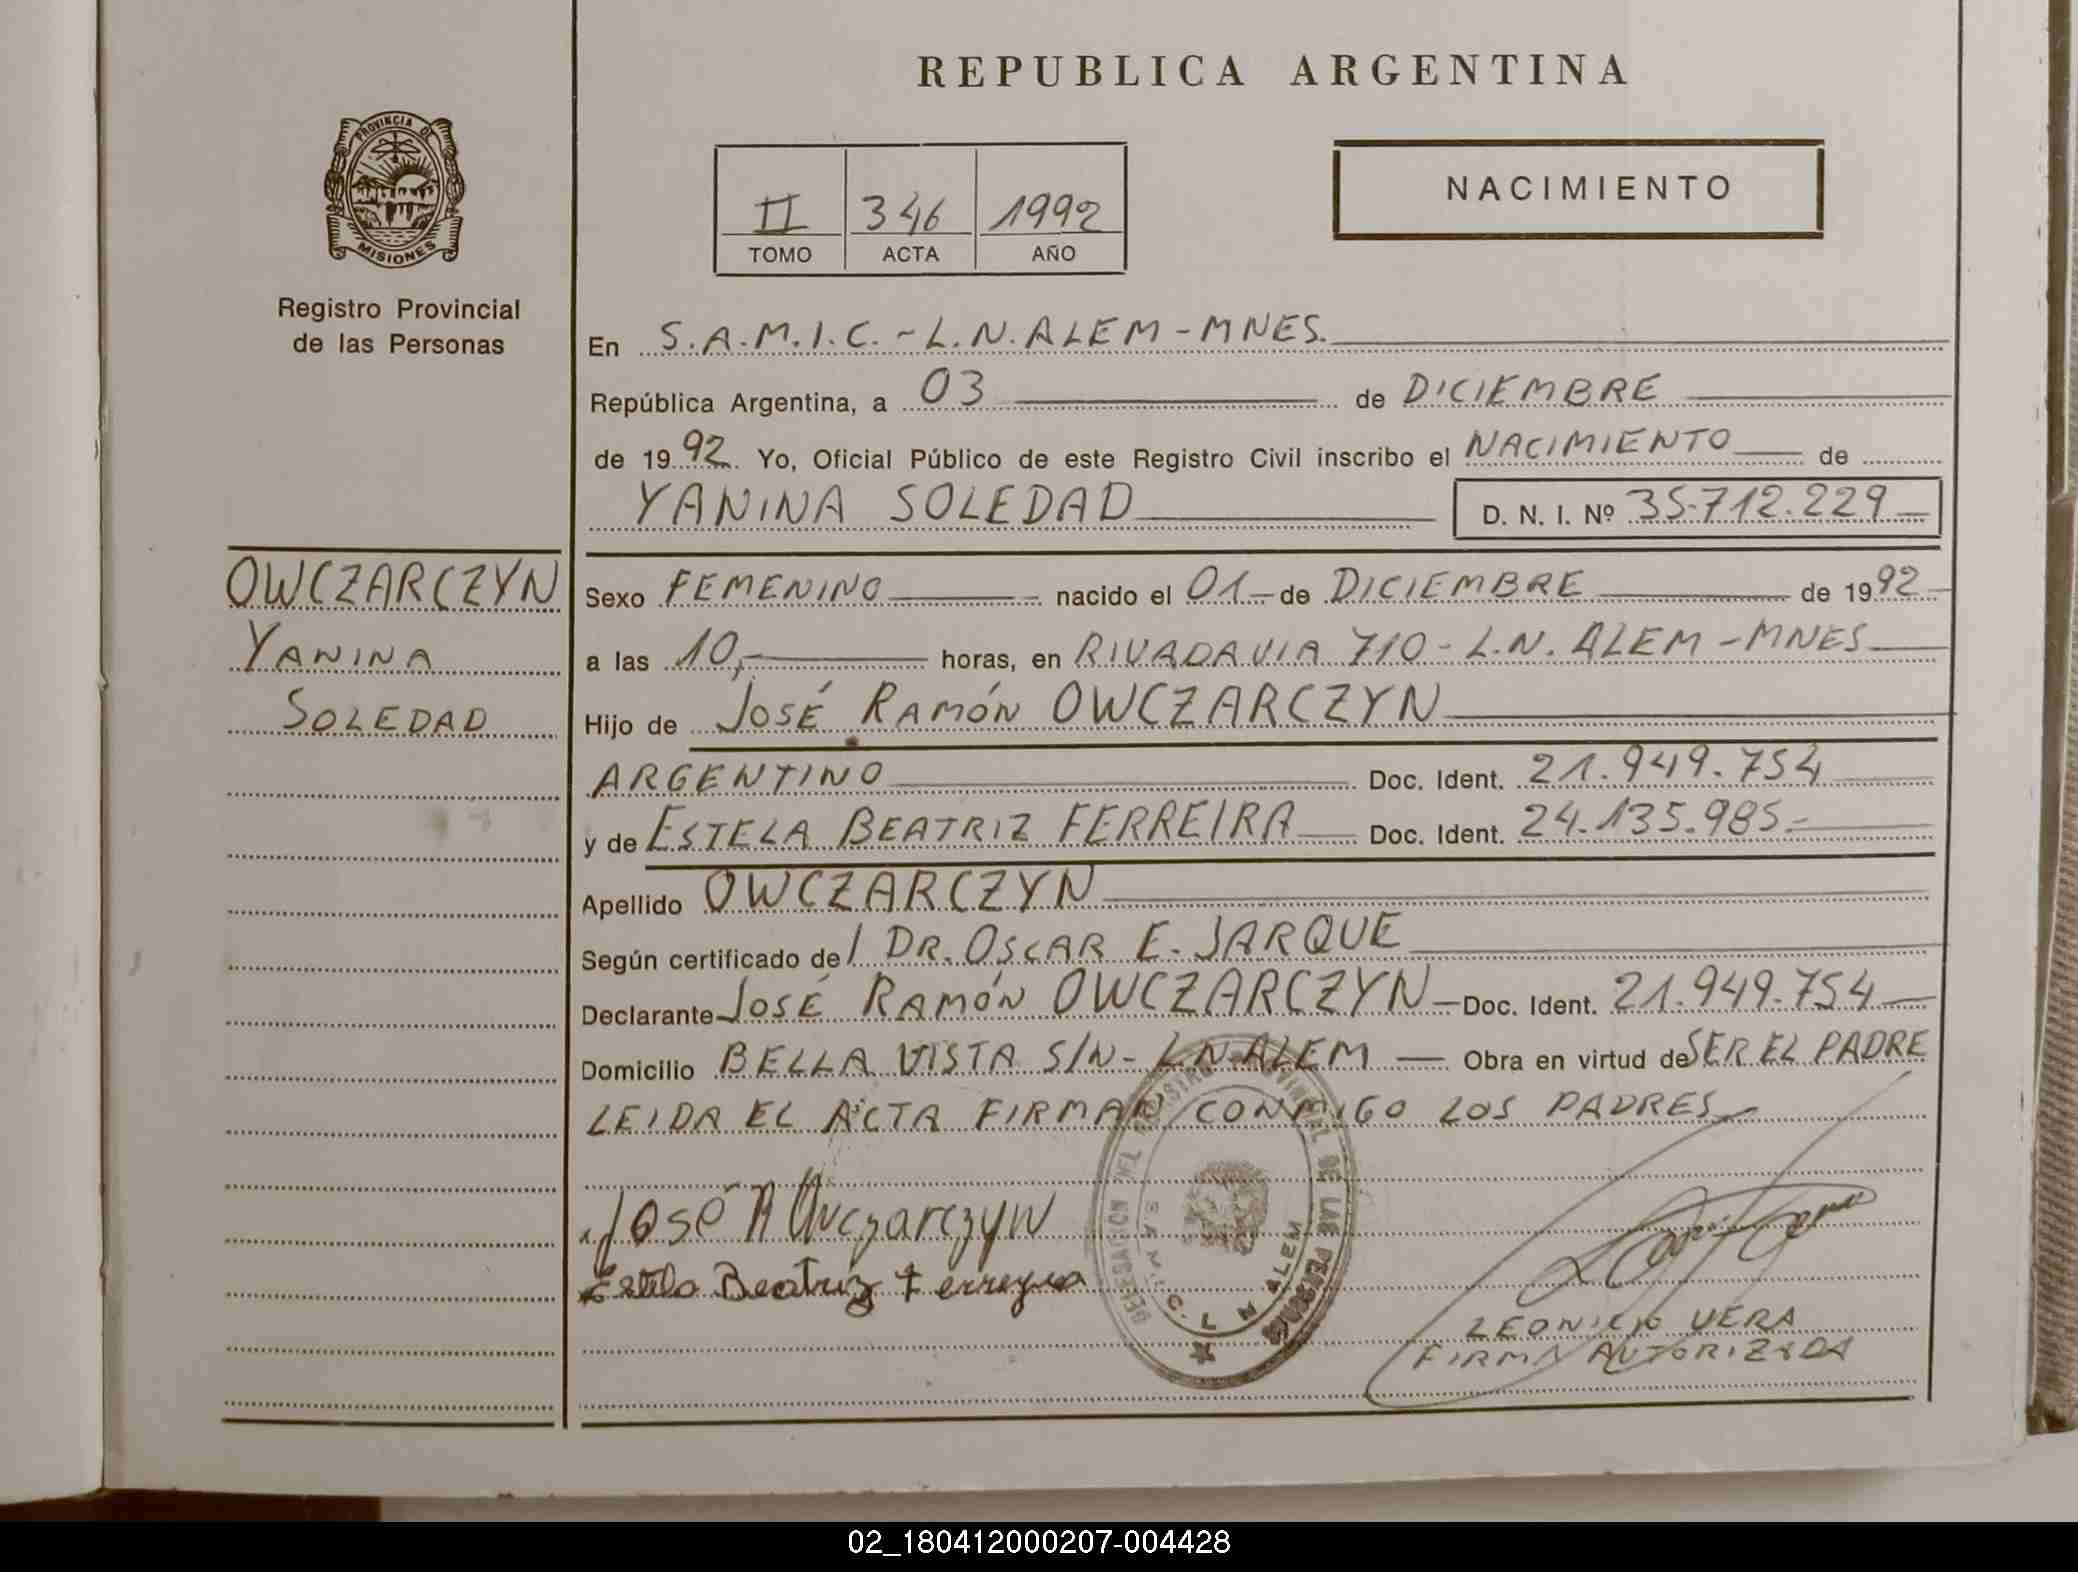 REPUBLICA ARGENTINA
PROVINCIA DE
MISIONES
Registro Provincial
de las Personas
II 346 1992
TOMO ACTA AÑO
NACIMIENTO
En S.A.M.I.C. - L.N. ALEM - MNES.
República Argentina, a 03 de DICIEMBRE
de 1992. Yo, Oficial Público de este Registro Civil inscribo el NACIMIENTO de
YANINA SOLEDAD D. N. I. Nº 35.712.229
OWCZARCZYN
YANINA
SOLEDAD
Sexo FEMENINO nacido el 01 de DICIEMBRE de 1992
a las 10,- horas, en RIVADAVIA 710 - L.N. ALEM - MNES
Hijo de JOSÉ RAMÓN OWCZARCZYN
ARGENTINO Doc. Ident. 21.949.754
y de ESTELA BEATRIZ FERREIRA Doc. Ident. 24.135.985.-
Apellido OWCZARCZYN
Según certificado de / DR. OSCAR E. JARQUE
Declarante JOSÉ RAMÓN OWCZARCZYN Doc. Ident. 21.949.754
Domicilio BELLA VISTA S/N - L.N. ALEM Obra en virtud de SER EL PADRE
LEIDA EL ACTA FIRMAN CONMIGO LOS PADRES
José R Owczarczyn
Estela Beatriz Ferreyra
DELEGACION DEL REGISTRO PROVINCIAL DE LAS PERSONAS
S.A.M.I.C. L N ALEM
LEONICIO VERA
FIRMA AUTORIZADA
02_180412000207-004428